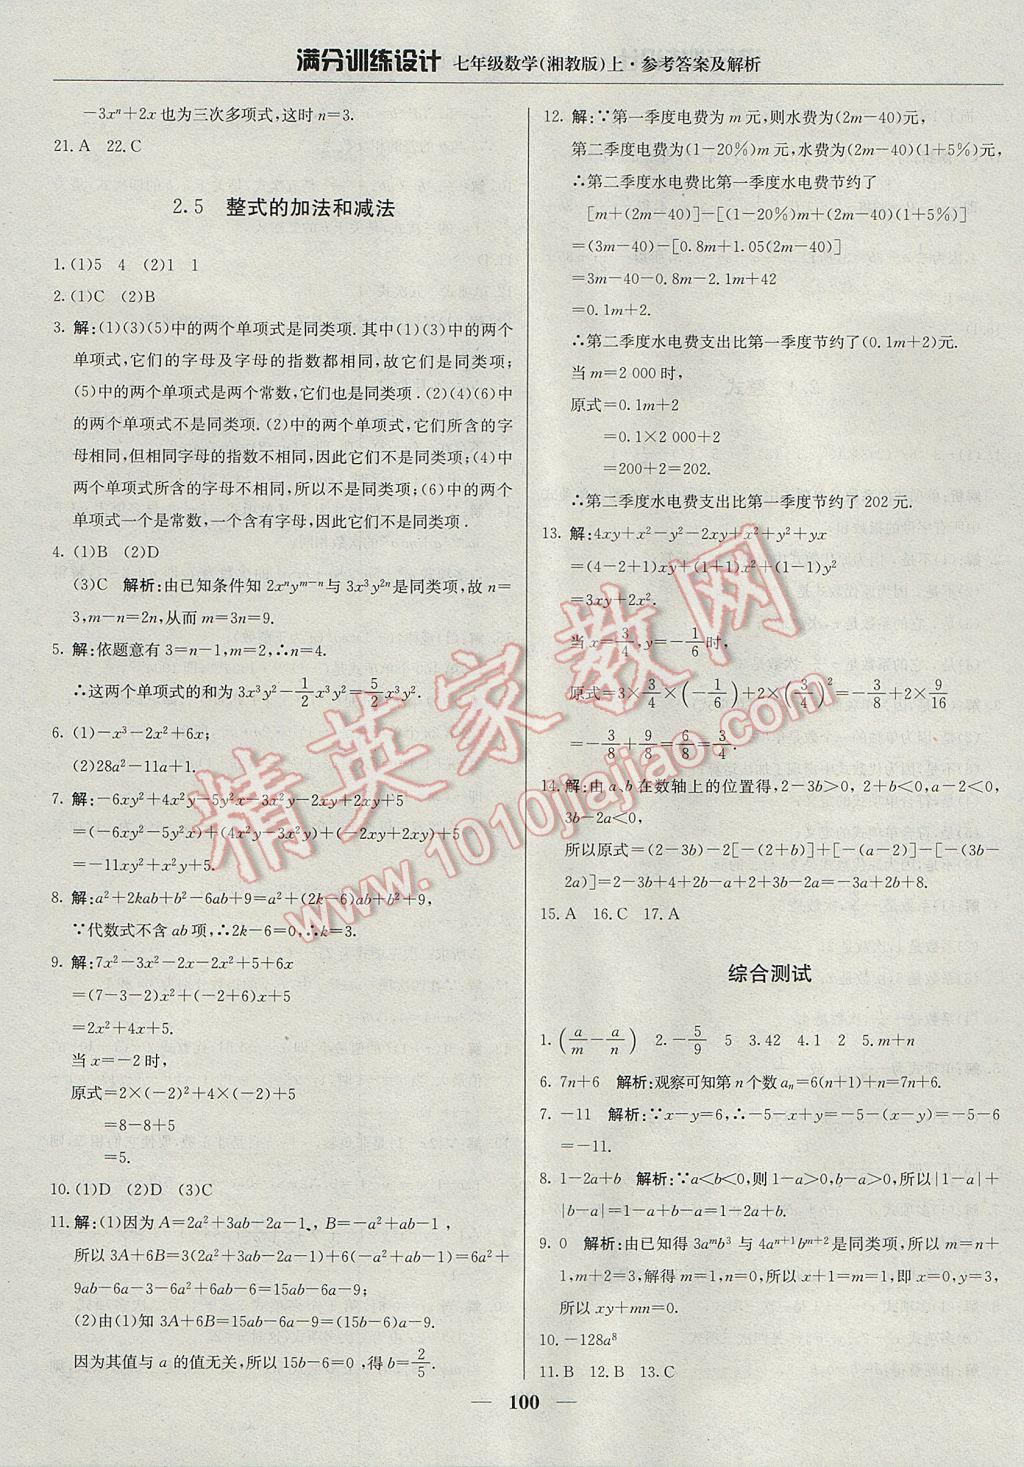 满分训练设计 七年级数学(湘教版)上·参考答案及解析
-3xⁿ+2x也为三次多项式,这时n=3.
21. A 22. C
2.5 整式的加法和减法
1. (1)5 4 (2)1 1
2. (1)C (2)B
3. 解:(1)(3)(5)中的两个单项式是同类项.其中(1)(3)中的两个
单项式,它们的字母及字母的指数都相同,故它们是同类项;
(5)中的两个单项式是两个常数,它们也是同类项.(2)(4)(6)中
的两个单项式不是同类项.(2)中的两个单项式,它们所含的字
母相同,但相同字母的指数不相同,因此它们不是同类项;(4)中
两个单项式所含的字母不相同,所以不是同类项;(6)中的两个
单项式一个是常数,一个含有字母,因此它们不是同类项.
4. (1)B (2)D
(3)C 解析:由已知条件知2xⁿyᵐ⁻ⁿ与3x³y²ⁿ是同类项,故n=
3,m-n=2n,从而m=3n=9.
5. 解:依题意有3=n-1,m=2,∴n=4.
∴这两个单项式的和为3x³y²-1/2x³y²=5/2x³y².
6. (1)-x³-2x²+6x;
(2)28a²-11a+1.
7. 解:-6xy²+4x²y-5y²x-3x²y-2xy+2xy+5
=(-6xy²-5y²x)+(4x²y-3x²y)+(-2xy+2xy)+5
=-11xy²+x²y+5.
8. 解:a²+2kab+b²-6ab+9=a²+(2k-6)ab+b²+9,
∵代数式不含ab项,∴2k-6=0,∴k=3.
9. 解:7x²-3x²-2x-2x²+5+6x
=(7-3-2)x²+(-2+6)x+5
=2x²+4x+5.
当x=-2时,
原式=2×(-2)²+4×(-2)+5
=8-8+5
=5.
10. (1)D (2)D (3)C
11. 解:(1)因为A=2a²+3ab-2a-1,B=-a²+ab-1,
所以3A+6B=3(2a²+3ab-2a-1)+6(-a²+ab-1)=6a²+
9ab-6a-3-6a²+6ab-6=15ab-6a-9;
(2)由(1)知3A+6B=15ab-6a-9=(15b-6)a-9.
因为其值与a的值无关,所以15b-6=0,得b=2/5.
12. 解:∵第一季度电费为m元,则水费为(2m-40)元,
第二季度电费为(1-20%)m元,水费为(2m-40)(1+5%)元,
∴第二季度水电费比第一季度水电费节约了
[m+(2m-40)]-[(1-20%)m+(2m-40)(1+5%)]
=(3m-40)-[0.8m+1.05(2m-40)]
=3m-40-0.8m-2.1m+42
=0.1m+2.
∴第二季度水电费支出比第一季度节约了(0.1m+2)元.
当m=2 000时,
原式=0.1m+2
=0.1×2 000+2
=200+2=202.
∴第二季度水电费支出比第一季度节约了202元.
13. 解:4xy+x²-y²-2xy+x²+y²+yx
=(4-2+1)xy+(1+1)x²+(1-1)y²
=3xy+2x².
当x=3/4,y=-1/6时,
原式=3×3/4×(-1/6)+2×(3/4)²=-3/8+2×9/16
=-3/8+9/8=6/8=3/4.
14. 解:由a、b在数轴上的位置得,2-3b>0,2+b<0,a-2<0,
3b-2a<0,
所以原式=(2-3b)-2[-(2+b)]+[-(a-2)]-[-(3b-
2a)]=2-3b+4+2b-a+2+3b-2a=-3a+2b+8.
15. A 16. C 17. A
综合测试
1. (a/m-a/n) 2. -5/9 5 3. 42 4. 1 2 5. m+n
6. 7n+6 解析:观察可知第n个数aₙ=6(n+1)+n=7n+6.
7. -11 解析:∵x-y=6,∴-5-x+y=-5-(x-y)=-5-6
=-11.
8. 1-2a+b 解析:∵a<b<0,则1-a>0,b-a>0,所以|1-a|+
|b-a|=1-a+b-a=1-2a+b.
9. 0 解析:由已知得3aᵐb³与4aⁿ⁺¹bᵐ⁺²是同类项,所以m=n+
1,m+2=3,解得m=1,n=0,所以x+1=m=1,即x=0,y=3,
所以xy+mn=0.
10. -128a⁸
11. B 12. B 13. C
— 100 —
精英家教网
www.1010jiajiao.com